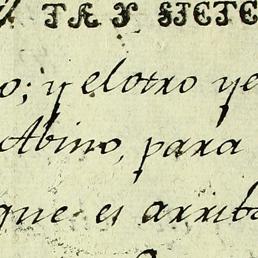 TA Y SIETE
o; y el otro ye
Abino, para
que es arriba